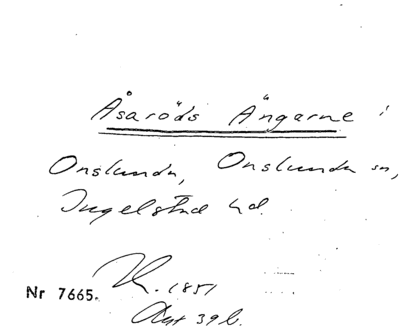 Åsaröds Ängarne i
Onslunda, Onslunda sn,
Ingelstad hd.
1851
Nr 7665.
Akt 39 b.